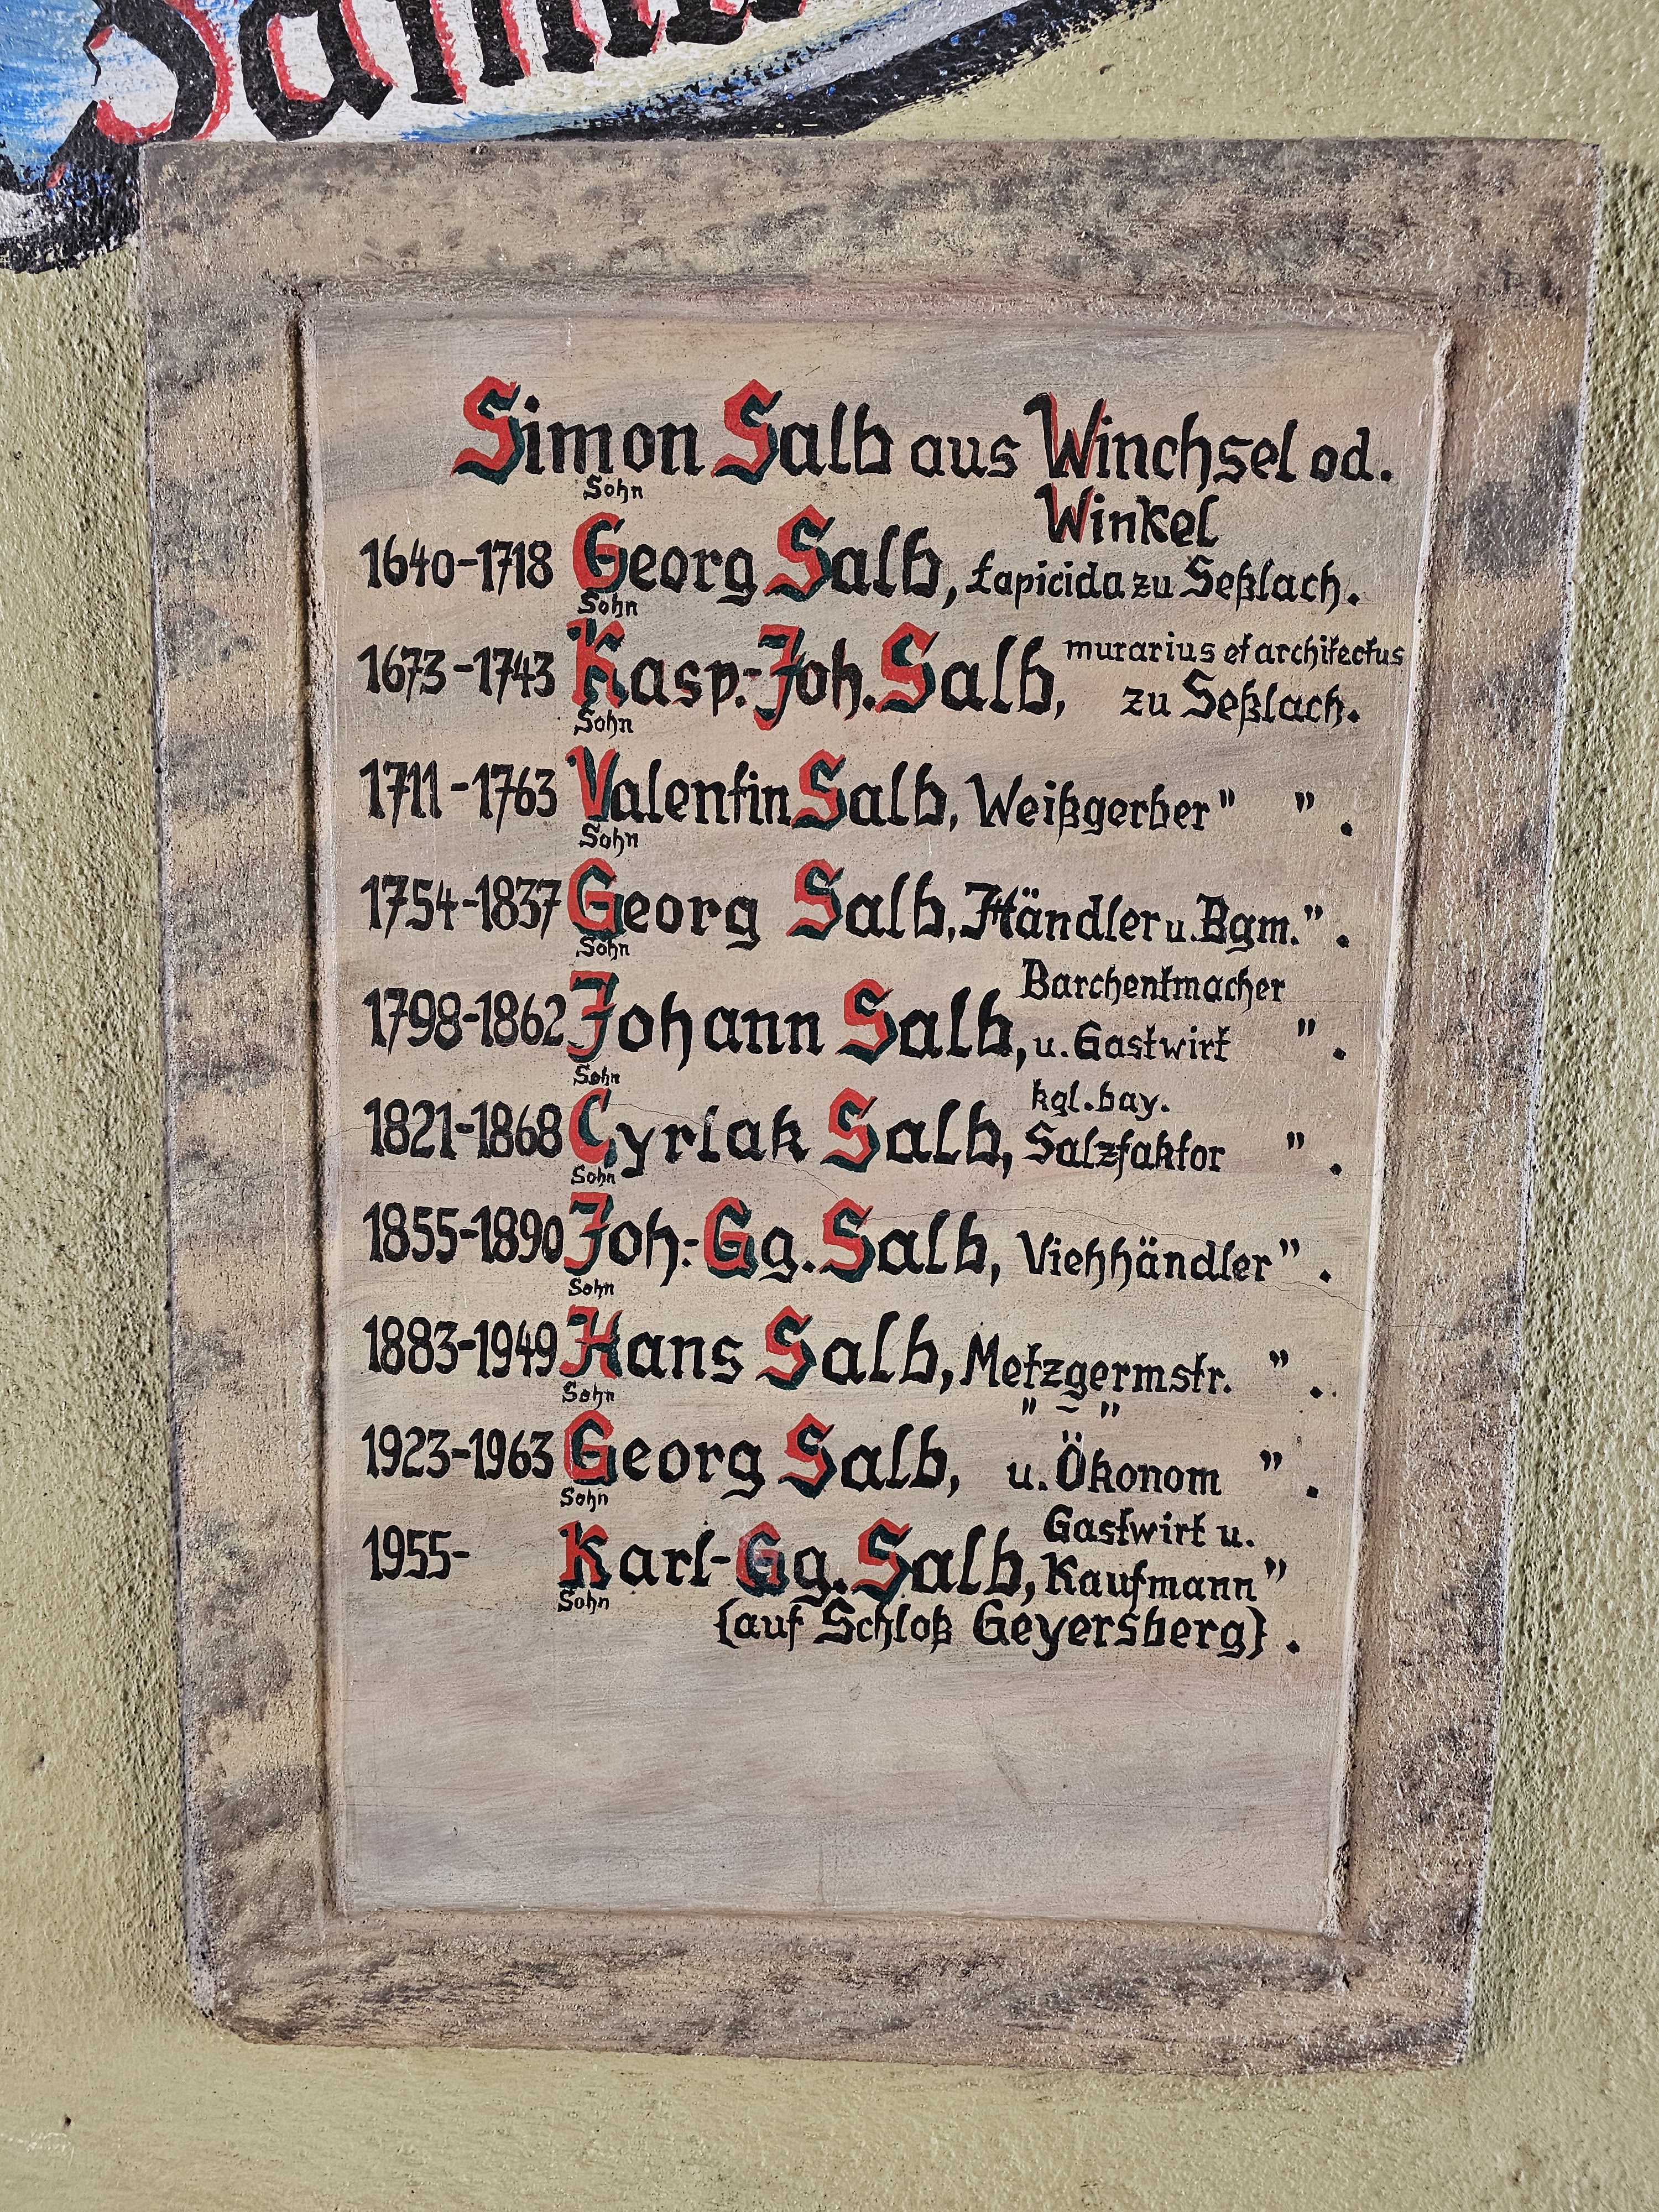 Simon Salb aus Winchsel od.
Winkel
Sohn
1640-1718 Georg Salb, Lapicida zu Seßlach.
Sohn
1673-1743 Kasp.-Joh. Salb, murarius et architectus
zu Seßlach.
Sohn
1711-1763 Valentin Salb, Weißgerber " " .
Sohn
1754-1837 Georg Salb, Händler u. Bgm. " .
Sohn
Barchentmacher
1798-1862 Johann Salb, u. Gastwirt " .
Sohn
kgl. bay.
1821-1868 Cyriak Salb, Salzfaktor " .
Sohn
1855-1890 Joh.-Gg. Salb, Viehhändler " .
Sohn
1883-1949 Hans Salb, Metzgermstr. " .
Sohn
" – "
1923-1963 Georg Salb, u. Ökonom " .
Sohn
Gastwirt u.
1955- Karl-Gg. Salb, Kaufmann "
Sohn
(auf Schloß Geyersberg) .